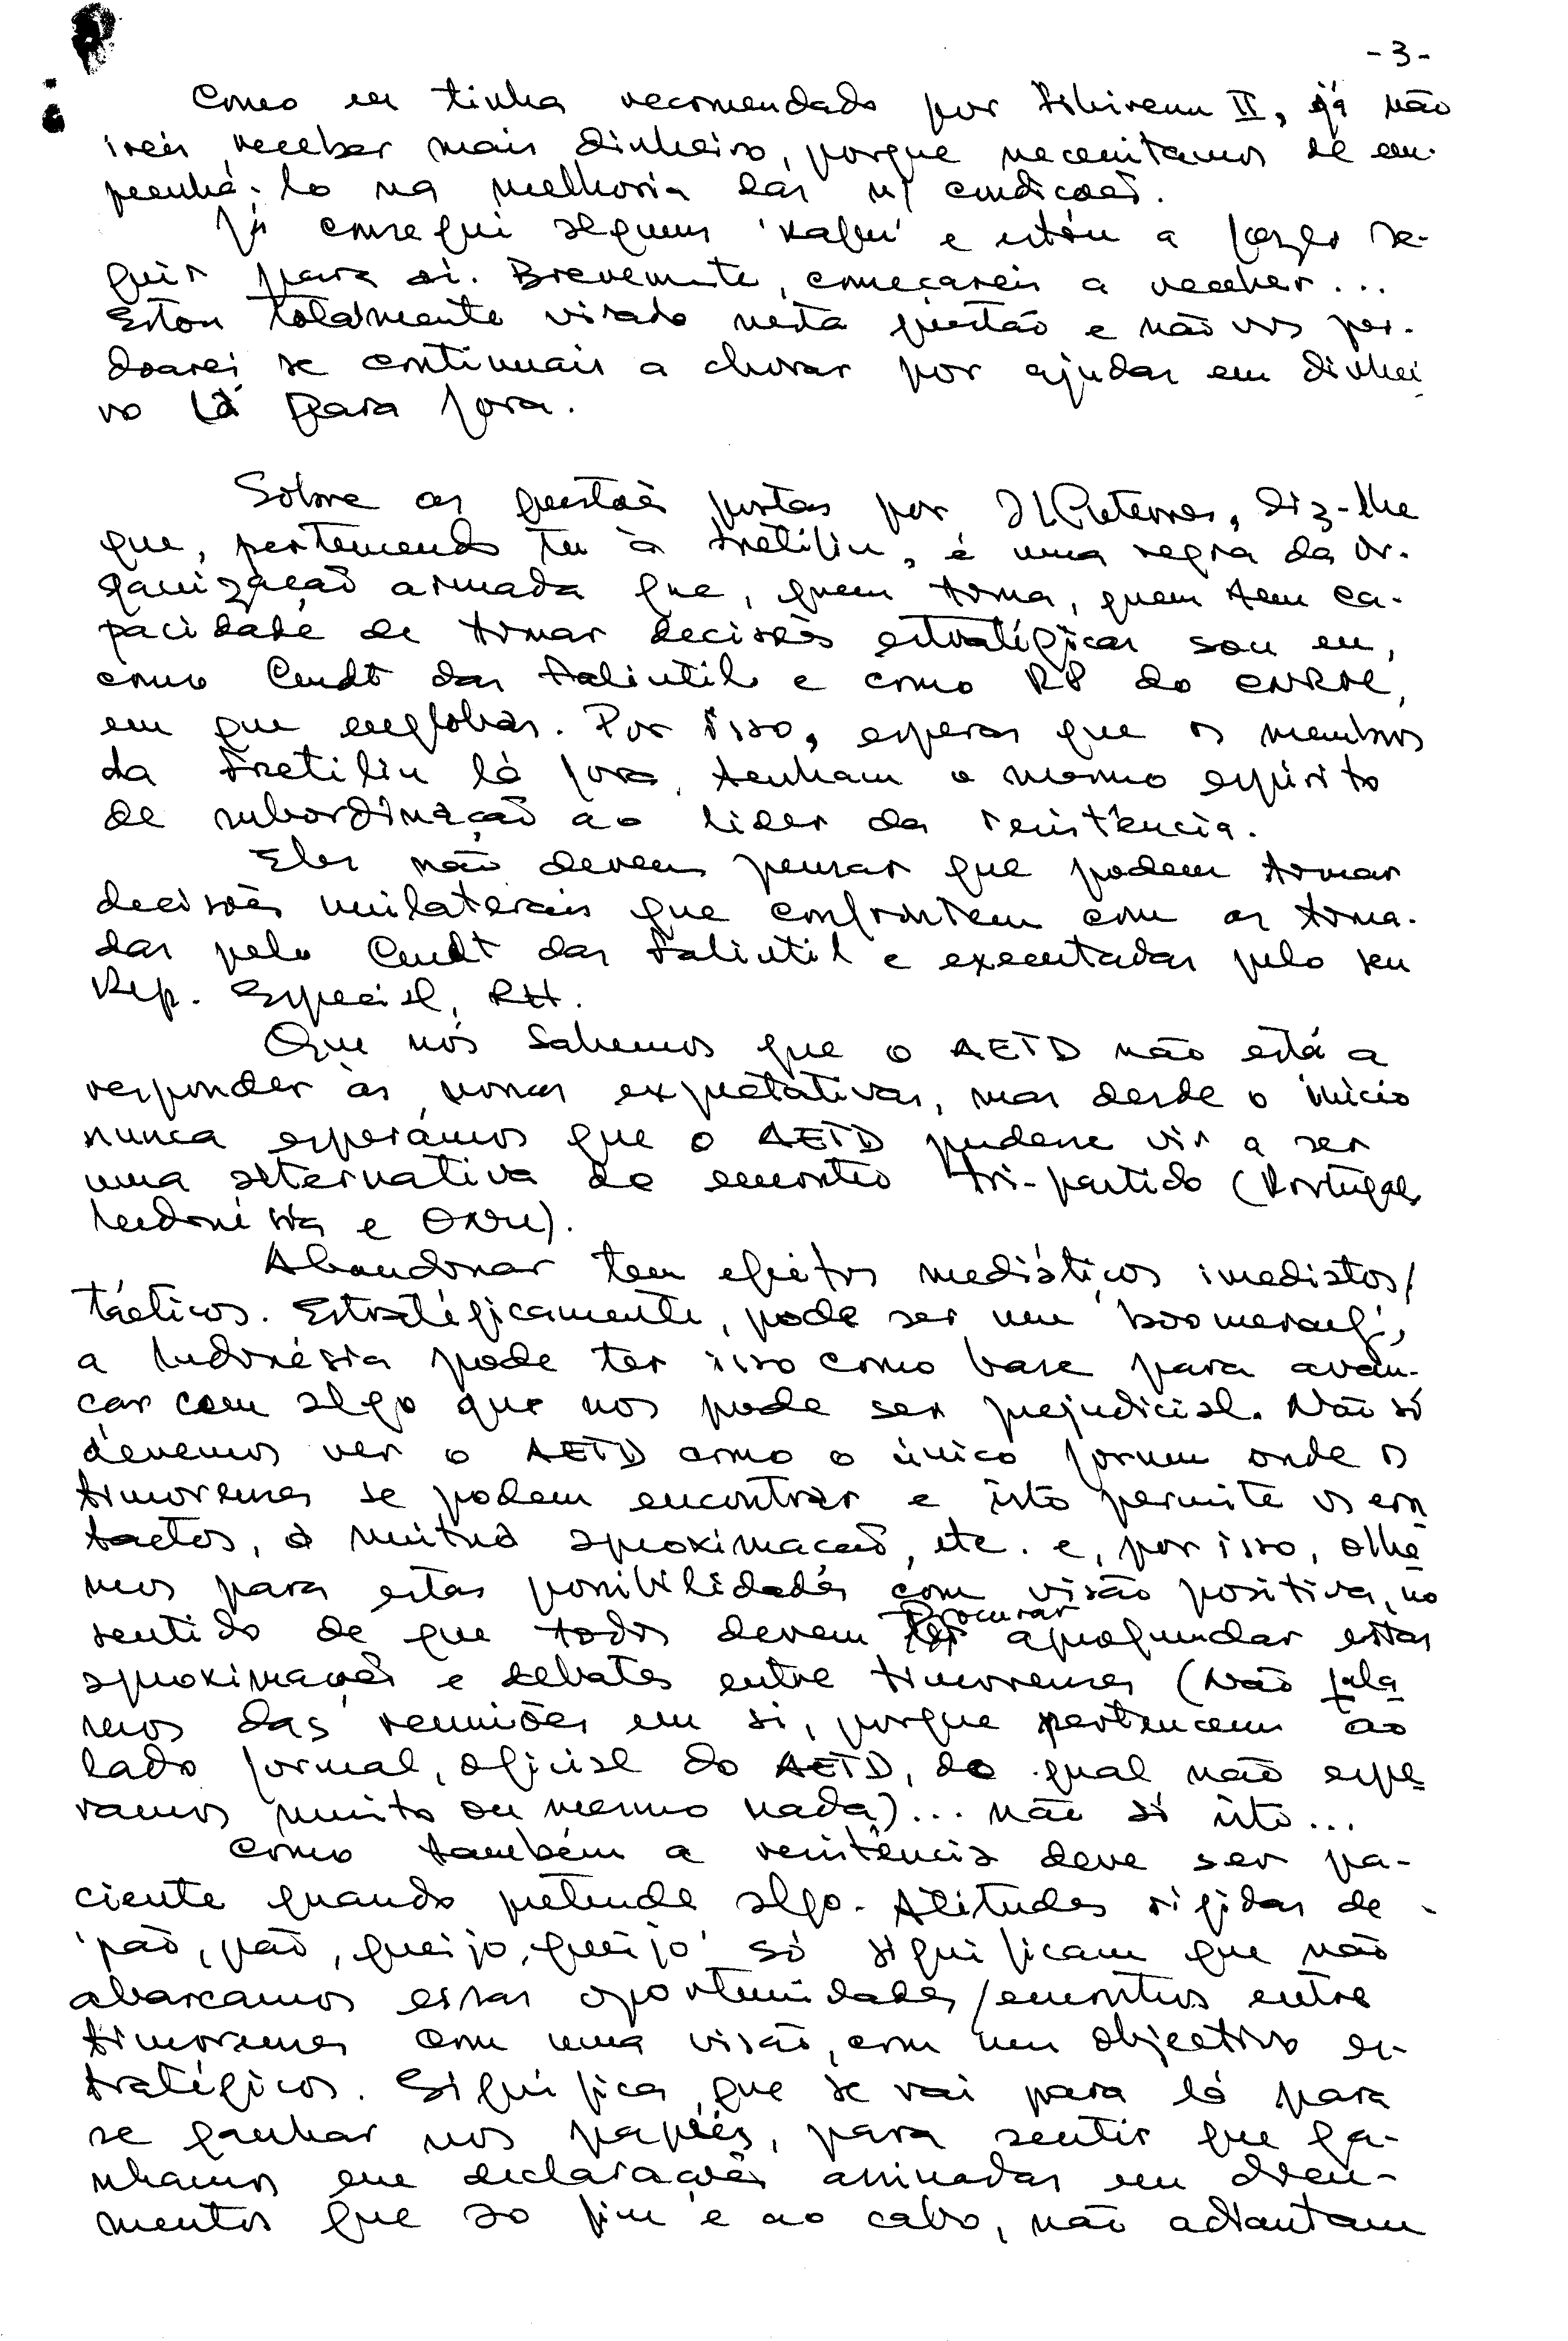 -3-
Como eu tinha recomendado por II, já não
ireis receber mais dinheiro, porque necessitamos de em-
penhá-lo na melhoria das n/ condições.
Já consegui alguns e estou a fazer se-
guir para aí. Brevemente, começareis a receber...
Estou totalmente virado nesta questão e não vos per-
doarei se continuais a chorar por ajudas em dinhei
ro lá para fora.
Sobre as questões postas por diz-lhe
que, pertencendo tu à Fretilin, é uma regra da or-
ganização armada que, quem toma, quem tem ca-
pacidade de tomar decisões estratégicas sou eu,
como Cmdt das Falintil e como RP do CNRM,
em que englobas. Por isso, esperas que os membros
da Fretilin lá fora, tenham o mesmo espírito
de subordinação ao lider da resistência.
Eles não devem pensar que podem tomar
decisões unilaterais que confrontem com as toma-
das pelo Cmdt das Falintil e executadas pelo seu
Rep. Especial, RH.
Que nós sabemos que o AETD não está a
responder às nossas expectativas, mas desde o início
nunca esperámos que o AETD pudesse vir a ser
uma alternativa do encontro tri-partido (Portugal,
Indonésia e ONU).
Abandonar tem efeitos mediáticos imediatos/
tácticos. Estratégicamente, pode ser um 'boomerang',
a Indonésia pode ter isso como base para avan-
çar com algo que nos pode ser prejudicial. Não só
devemos ver o AETD como o único forum onde os
timorenses se podem encontrar e isto permite os con
tactos, a mútua aproximação, etc. e, por isso, olhe
mos para estas possibilidades com visão positiva, no
sentido de que todos devem procurar aprofundar estas
aproximações e debates entre timorenses (Não fala
mos das reuniões em si, porque pertencem ao
lado formal, oficial do AETD, do qual não espe
ramos muito ou mesmo nada)... não só isto...
Como também a resistência deve ser pa-
ciente quando pretende algo. Atitudes rígidas de
'pão, pão, queijo, queijo' só significam que não
abarcamos essas oportunidades/encontros entre
timorenses com uma visão, com um objectivo es-
tratégicos. Significa que se vai para lá para
se ganhar nos papéis, para sentir que ga-
nhamos em declarações assinadas em docu-
mentos que ao fim e ao cabo, não adiantam